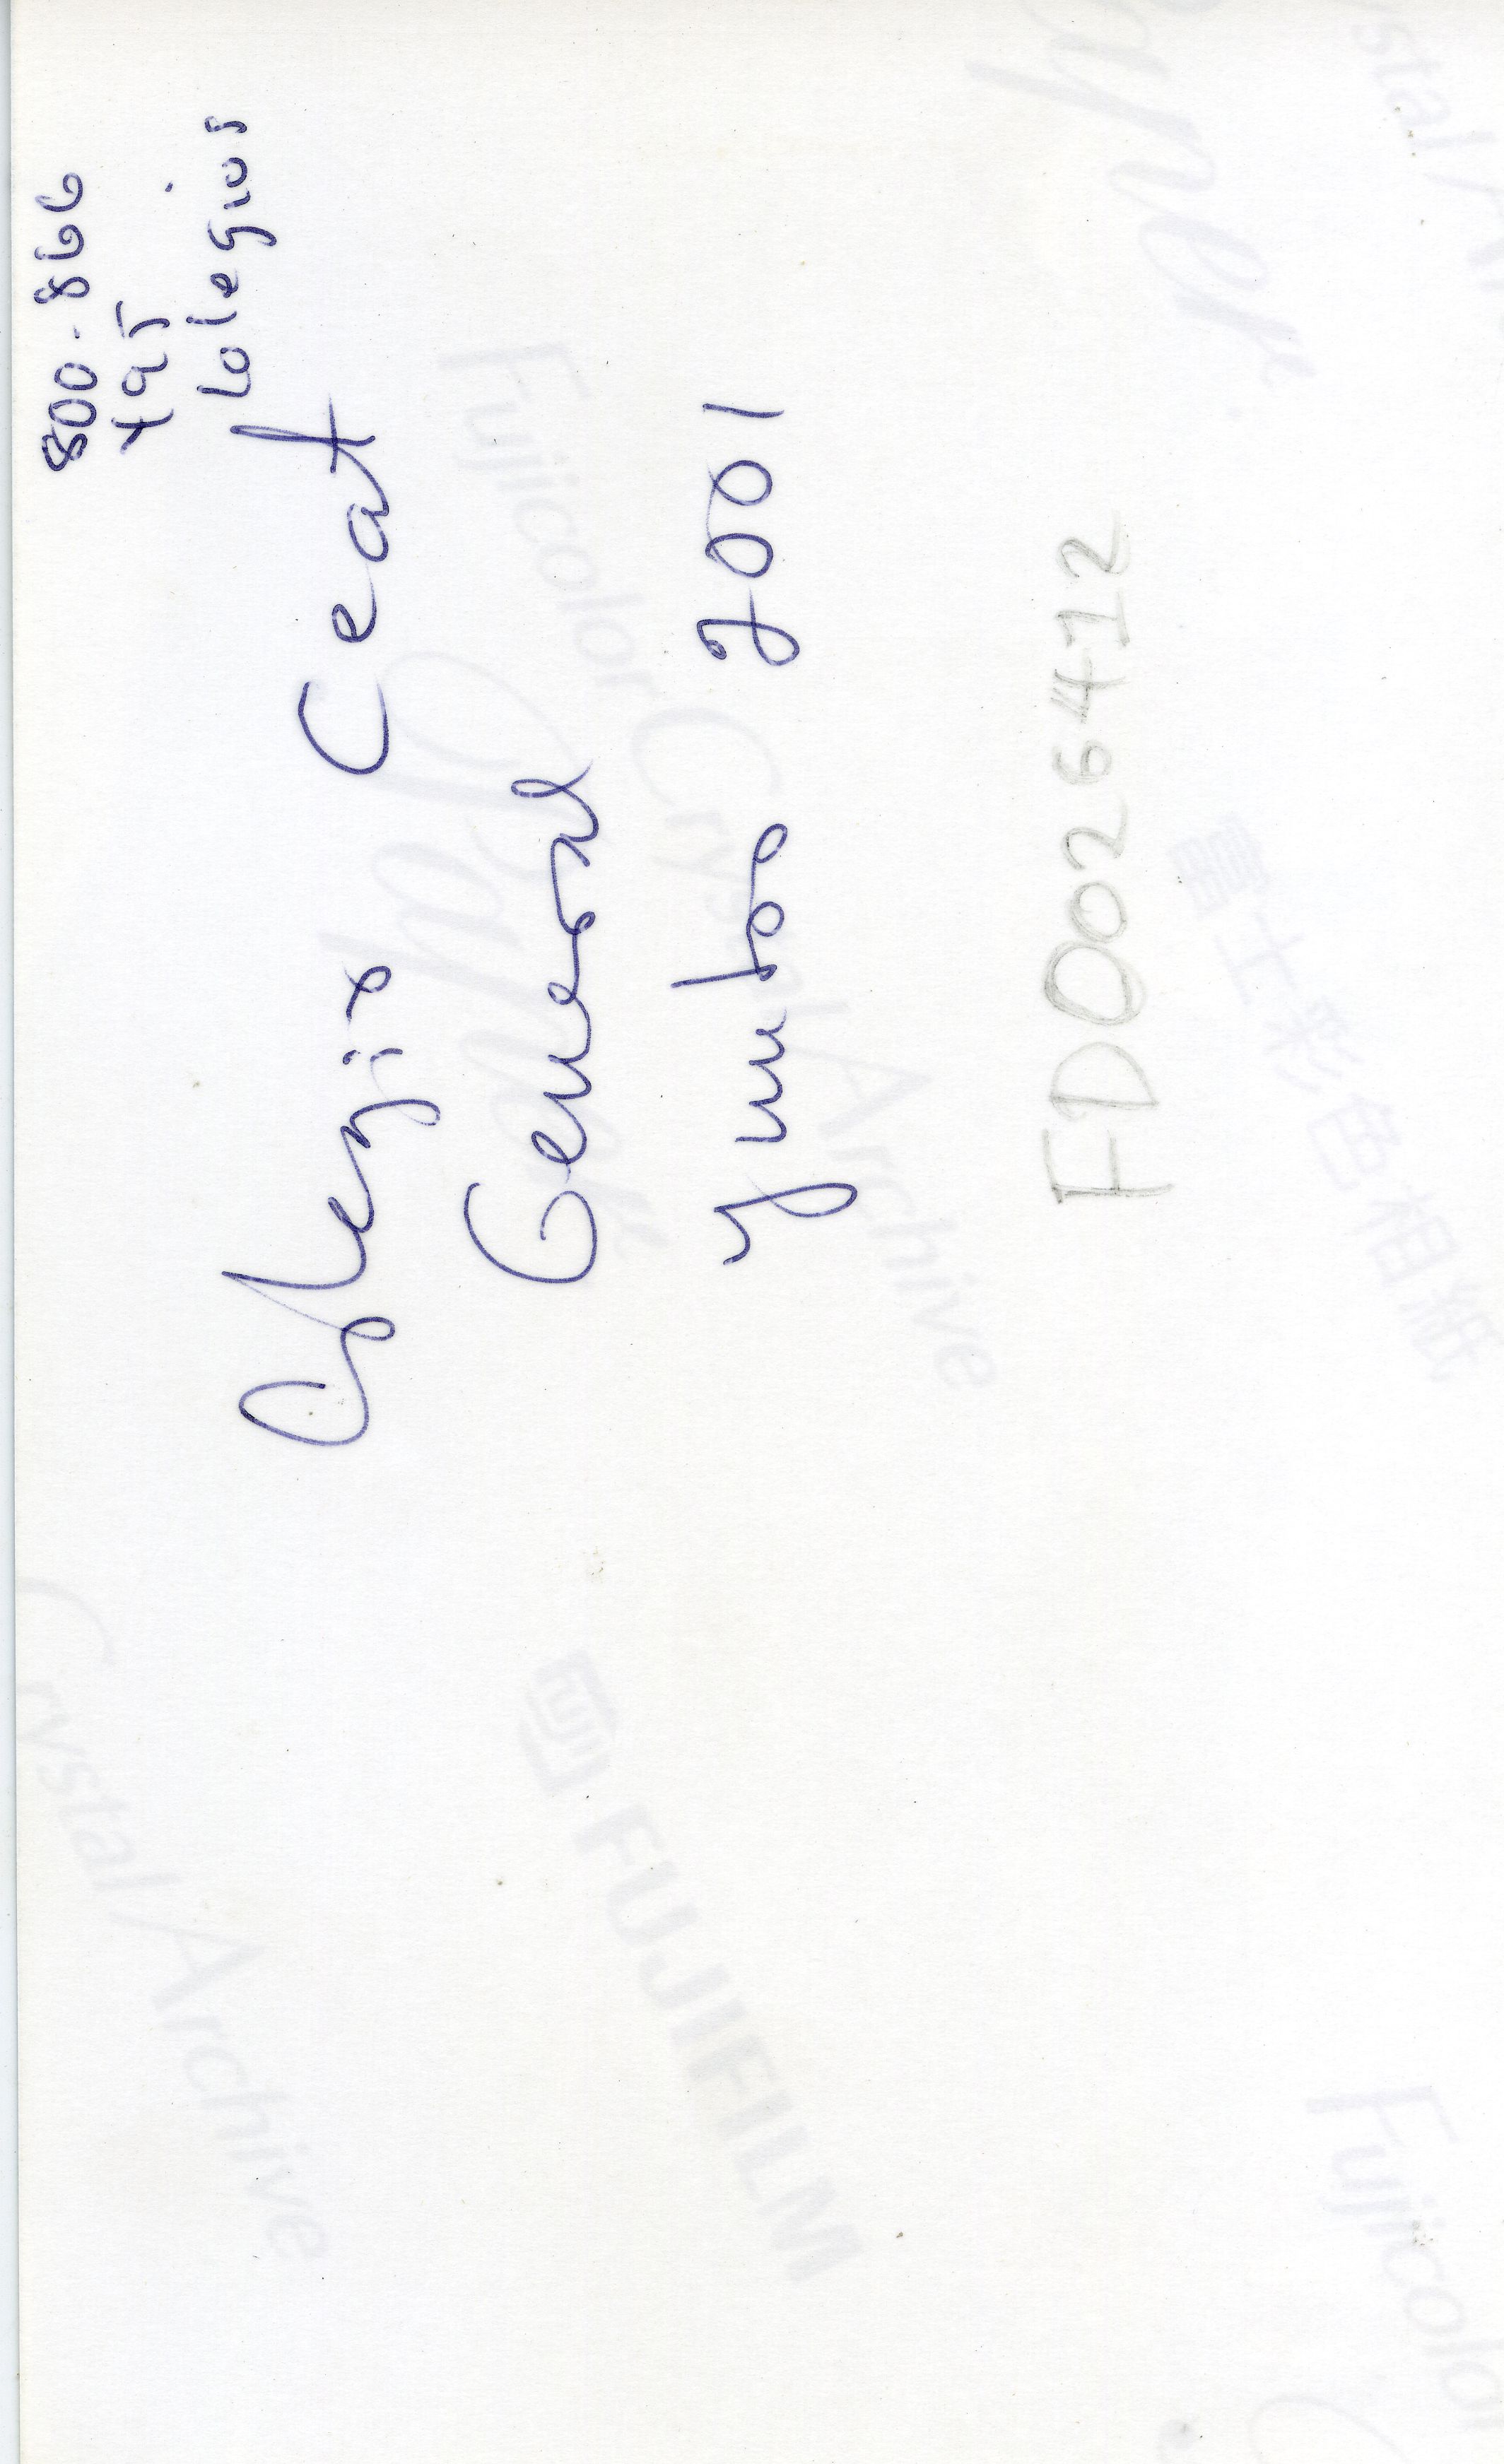 800.866
Y95
Colegios
Colegio Ceat
General
Yumbo 2001
FD0026412
Fujicolor Crystal Archive
富士彩色相紙
Crystal Archive
FUJIFILM
Fujicolor